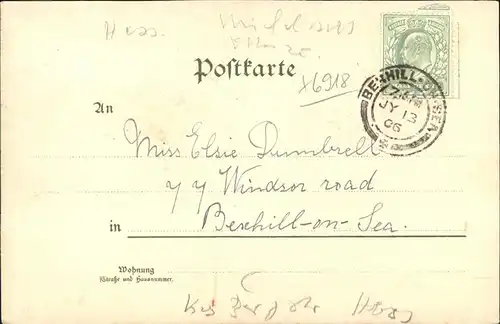 Hess.
Postkarte
x6918
BEXHILL-ON-SEA
7.15 PM
JY 13
06
An
Miss Elsie Dumbrell
77 Windsor road
in Bexhill-on-Sea.
Wohnung
(Straße und Hausnummer)